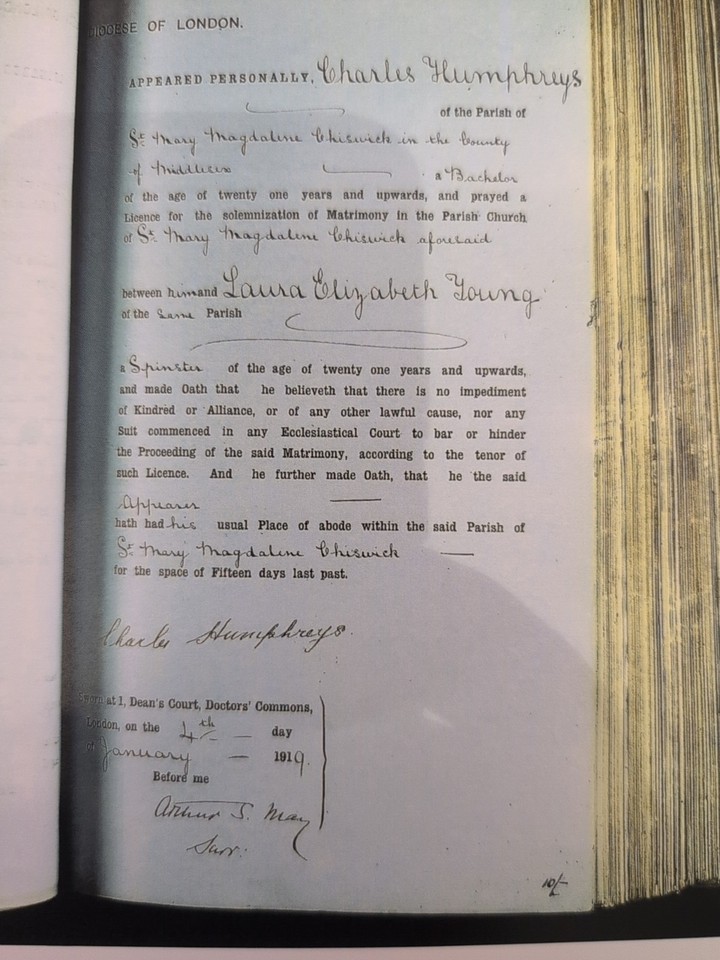 DIOCESE OF LONDON.
APPEARED PERSONALLY, Charles Humphreys
of the Parish of
St. Mary Magdalene Chiswick in the County
of Middlesex
a Bachelor
of the age of twenty one years and upwards, and prayed a
Licence for the solemnization of Matrimony in the Parish Church
of St. Mary Magdalene Chiswick aforesaid
between him and Laura Elizabeth Young
of the same Parish
a Spinster of the age of twenty one years and upwards,
and made Oath that he believeth that there is no impediment
of Kindred or Alliance, or of any other lawful cause, nor any
Suit commenced in any Ecclesiastical Court to bar or hinder
the Proceeding of the said Matrimony, according to the tenor of
such Licence. And he further made Oath, that he the said
Appearer
hath had his usual Place of abode within the said Parish of
St. Mary Magdalene Chiswick
for the space of Fifteen days last past.
Charles Humphreys.
Sworn at 1, Dean's Court, Doctors' Commons,
London, on the 4th day
of January 1919.
Before me
Arthur S. May
Surr:
10/-